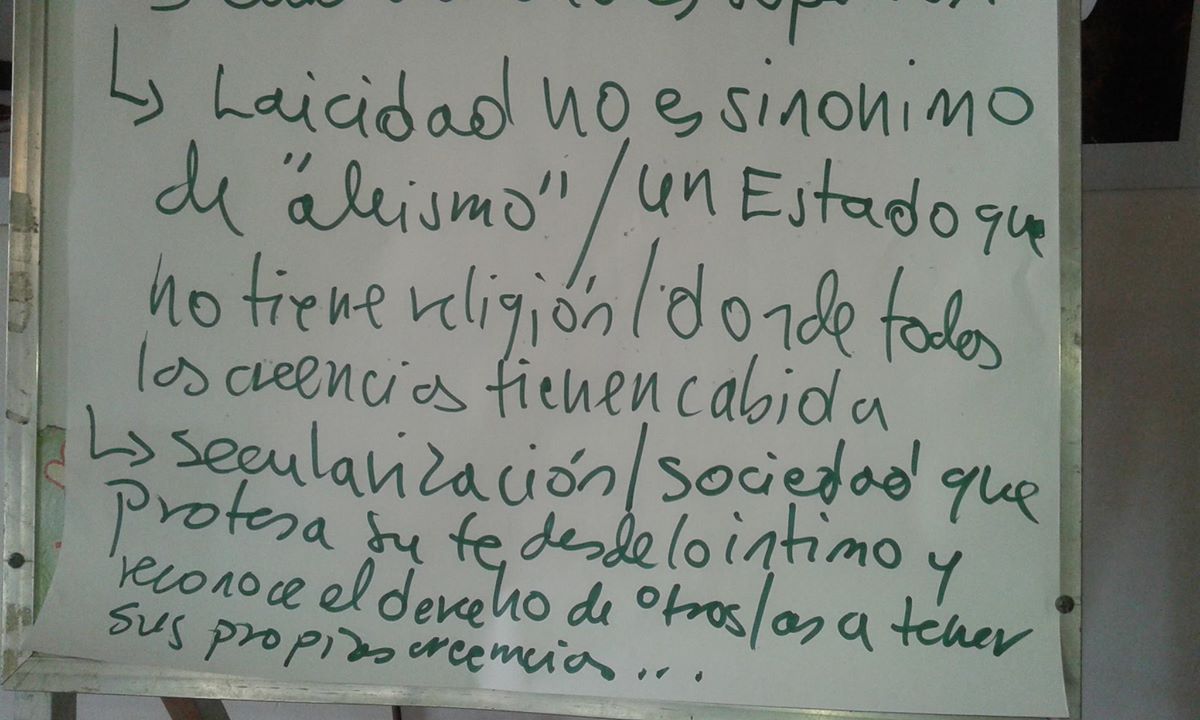 ↳ Laicidad no es sinonimo
de "ateismo" / un Estado que
no tiene religión / donde todas
las creencias tienen cabida
↳ secularización / sociedad que
profesa su fe desde lo intimo y
reconoce el derecho de otros/as a tener
sus propias creencias...